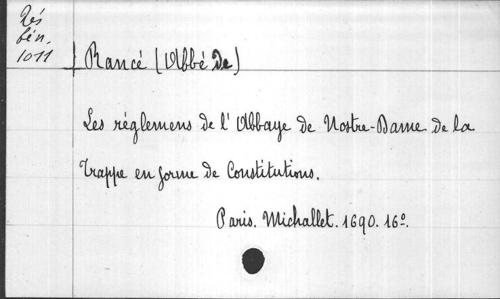 Rés
bén.
1011
Rancé (Abbé de)
Les réglemens de l'Abbaye de Nostre-Dame de la
Trappe en forme de Constitutions.
Paris. Michallet. 1690. 16º.